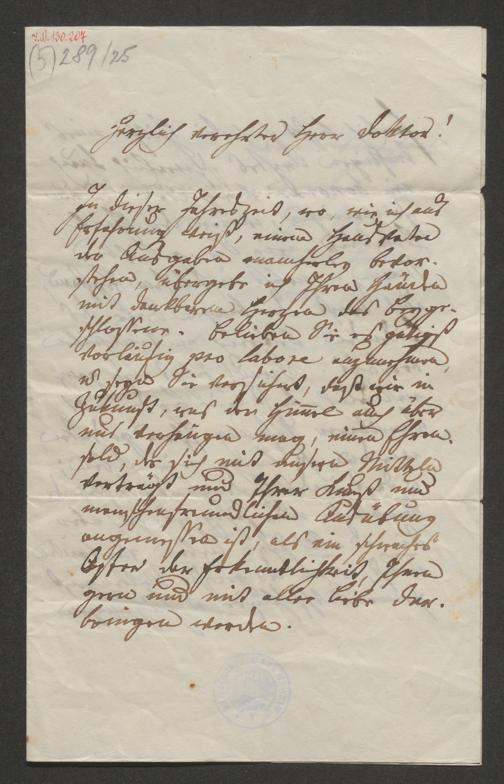 I.N. 130.207
(5) 289/25
Herzlich verehrter Herr Doktor!
In dieser Jahreszeit, wo, wie ich aus
Erfahrung weiß, einem Hausvater
der Ausgaben mancherley bevor-
stehen, übergebe ich Ihren Händen
mit dankbarem Herzen das Beyge-
schlossene. Belieben Sie es gütigst
vorläufig pro labore anzunehmen,
u seyen Sie versichert, daß wir in
Zukunft, was der Himmel auch über
uns verhängen mag, einen Ehren-
sold, der sich mit unsern Mitteln
verträgt und Ihrer Kunst und
menschenfreundlichen Ausübung
angemessen ist, als ein schwaches
Opfer der Erkenntlichkeit, Ihnen
gern und mit aller Liebe dar-
bringen werden.